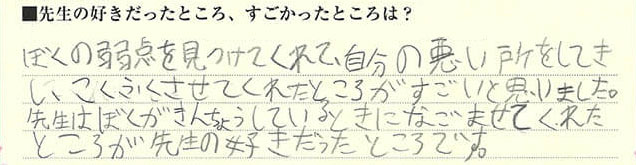 ■先生の好きだったところ、すごかったところは？
ぼくの弱点を見つけてくれて、自分の悪い所をしてき
し、こくふくさせてくれたところがすごいと思いました。
先生はぼくがきんちょうしているときになごませてくれた
ところが先生の好きだったところです。